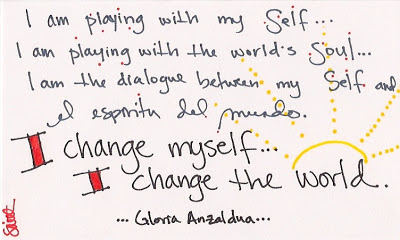 I am playing with my Self...
I am playing with the world's Soul...
I am the dialogue between my Self and
el espiritu del mundo.
I change myself...
I change the world.
... Gloria Anzaldua...